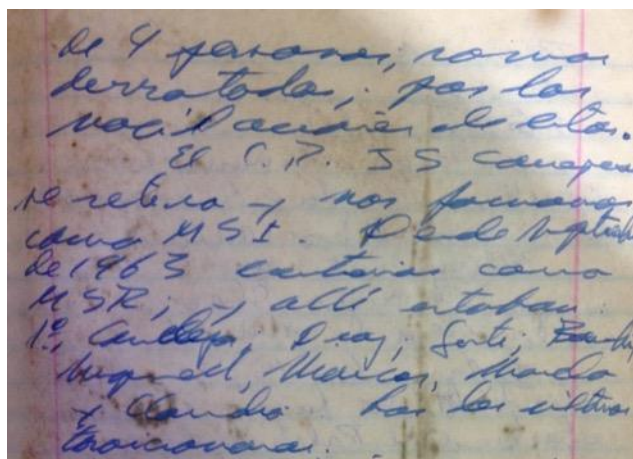 de 4 personas, somos
derrotados, por las
vacilaciones de estos.
El C.R. J S
se retira y nos formamos
como MSI. Desde septiem
de 1963 como
MSR, y allí estaban
1º, Candeja, Diaz,
Miguel, Marcos,
y Claudio los dos ultimos
traicionaron.